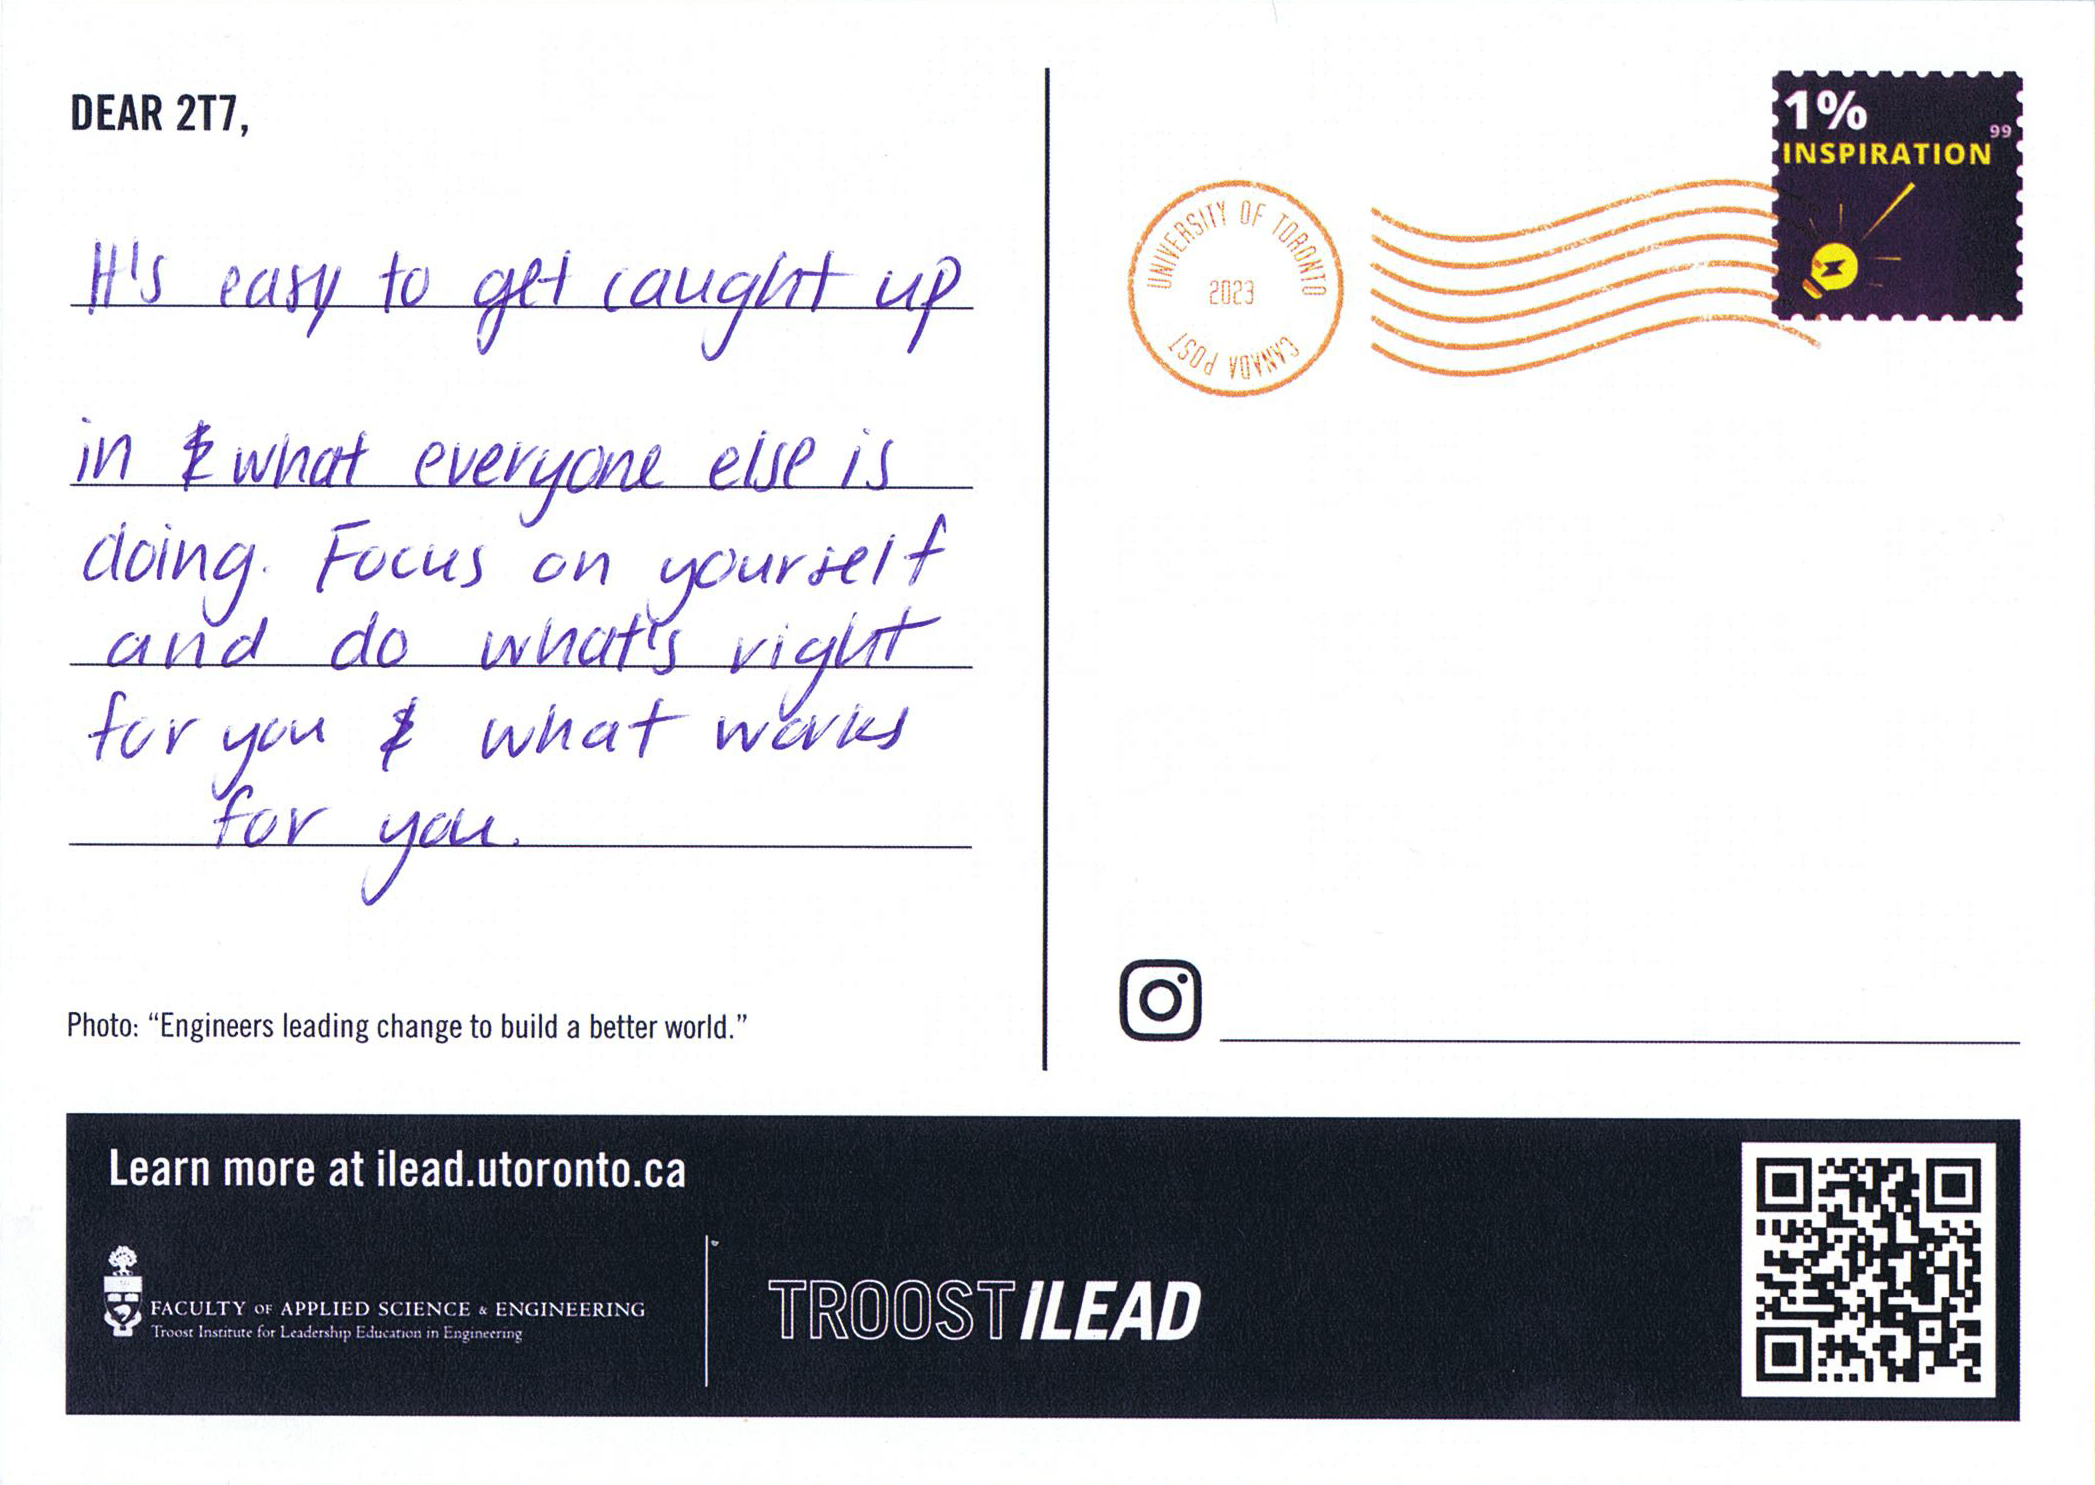 DEAR 2T7,
It's easy to get caught up
in & what everyone else is
doing. Focus on yourself
and do what's right
for you & what works
for you.
Photo: “Engineers leading change to build a better world.”
1%
99
INSPIRATION
UNIVERSITY OF TORONTO
2023
CANADA POST
Learn more at ilead.utoronto.ca
FACULTY OF APPLIED SCIENCE & ENGINEERING
Troost Institute for Leadership Education in Engineering
TROOST ILEAD